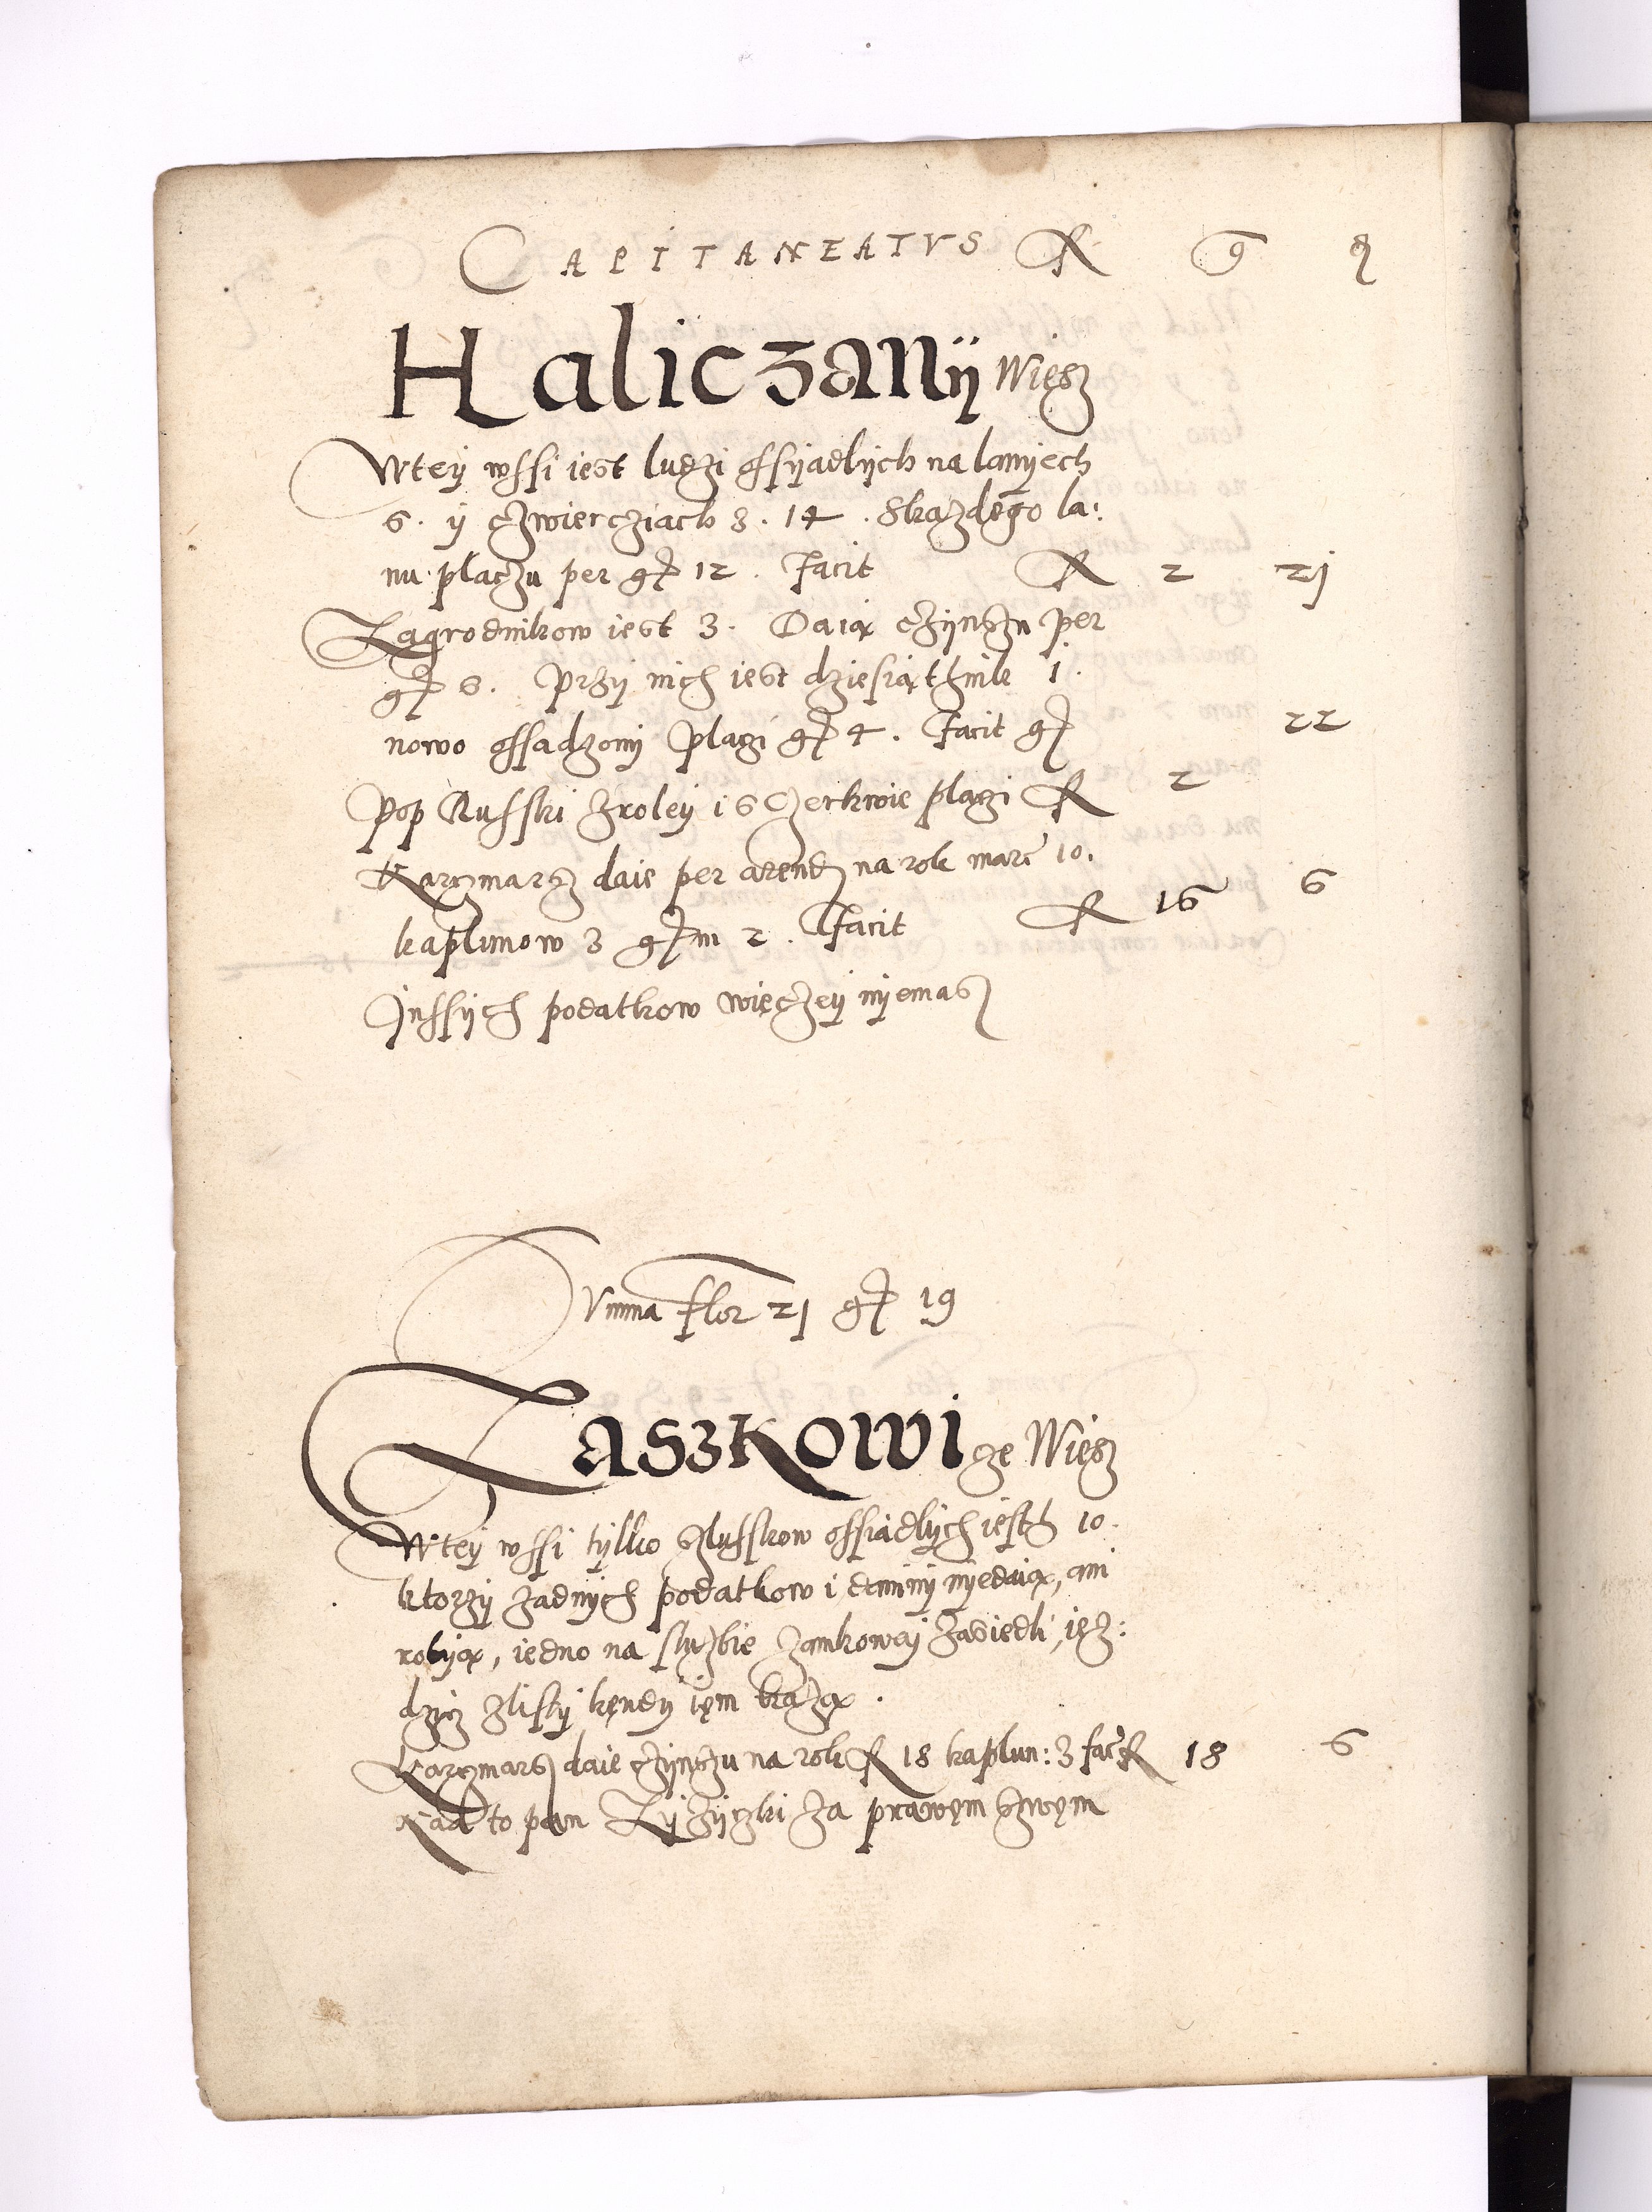 CAPITANEATVS fl g d
Haliczanÿ Wiesz
W teÿ wssi iest ludzi ossÿadlÿch na lanÿech
6 . ÿ czwiercziach 3 . 14 . Skazdego la:
nu placzu per gr 12 . Facit fl 2 21
Zagrodnikow iest 3 . Daią czÿnszu per
gr 6 . Przÿ nich iest dziesiąthnik 1 .
nowo ossadzonÿ placzi gr 4 . Facit gr 22
Pop Russki zroleÿ i s Czerkwie placzi fl 2
Karczmarz daie per arendę na rok marc 10 .
kaplunow 3 gr m 2 . Facit fl 16 6
Jnssÿch podatkow więczeÿ nÿemasz
Summa flor 21 gr 19
Zaszkowicze Wiesz
W teÿ wssi tÿlko Sluszkow ossiadlÿch iesth 10 .
ktorzÿ zadnÿch podatkow i danini nÿedaią, ani
robÿą, iedno na sluzbie zamkoweÿ zasiedli, ież:
dzicz zlistÿ kęndÿ iem każą .
Karczmarz daie czÿnszu na rok fl 18 kaplun: 3 fac fl 18 6
Nad to pan Zÿ zÿczki za prawem szwem